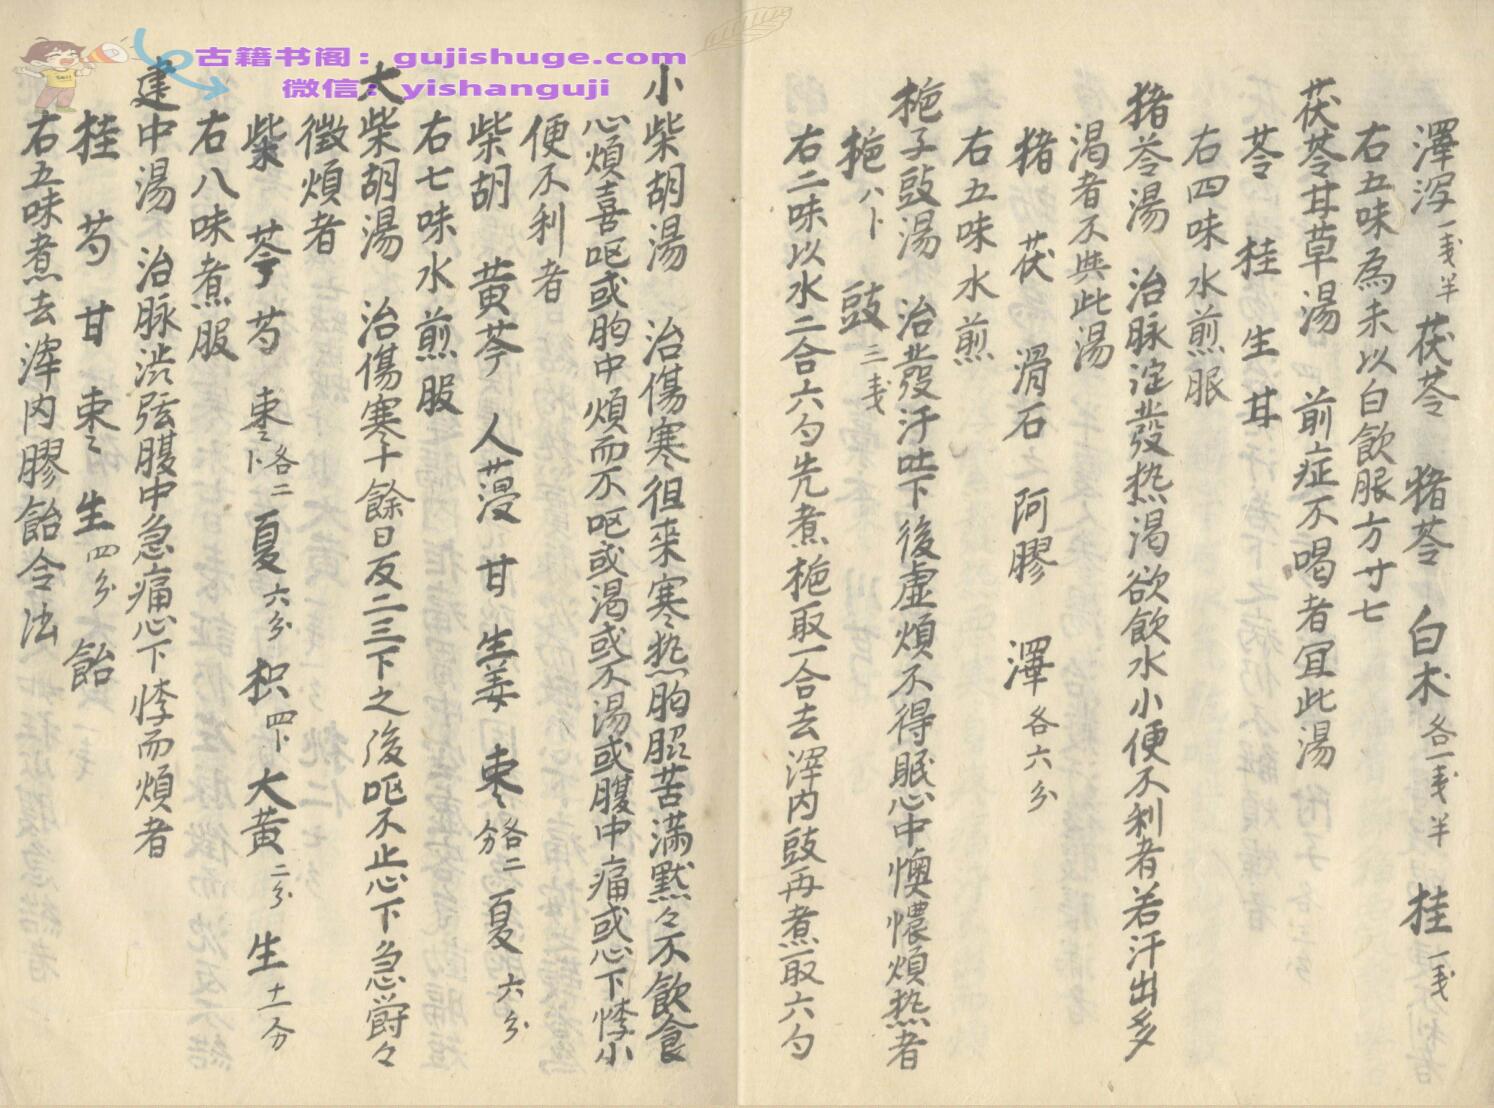 古籍书阁：gujishuge.com
微信：yishanguji
澤泻一戋半 茯苓 猪苓 白术各一戋半 桂一戋
右五味為末以白飲服方寸七
茯苓甘草湯 前症不喝者宜此湯
苓 桂 生 甘
右四味水煎服
猪苓湯 治脉浮發热渴欲飲水小便不利者若汗出多
渴者不與此湯
猪 茯 滑石 阿膠 澤各六分
右五味水煎
梔子豉湯 治發汗吐下後虚煩不得眠心中懊憹煩热者
梔八卜 豉三戋
右二味以水二合六勺先煮梔取一合去滓内豉再煮取六勺
小柴胡湯 治傷寒徃来寒热胸脇苦满默々不飲食
心煩喜呕或胸中煩而不呕或渴或不渴或腹中痛或心下悸小
便不利者
柴胡 黄芩 人蓡 甘 生姜 棗各二分 夏六分
右七味水煎服
大柴胡湯 治傷寒十餘日反二三下之後呕不止心下急欝々
微煩者
柴 芩 芍 棗各二卜 夏六分 枳四卜 大黄二分 生十一分
右八味煮服
建中湯 治脉渋弦腹中急痛心下悸而煩者
桂 芍 甘 棗 生四分 飴
右五味煮去滓内膠飴令法